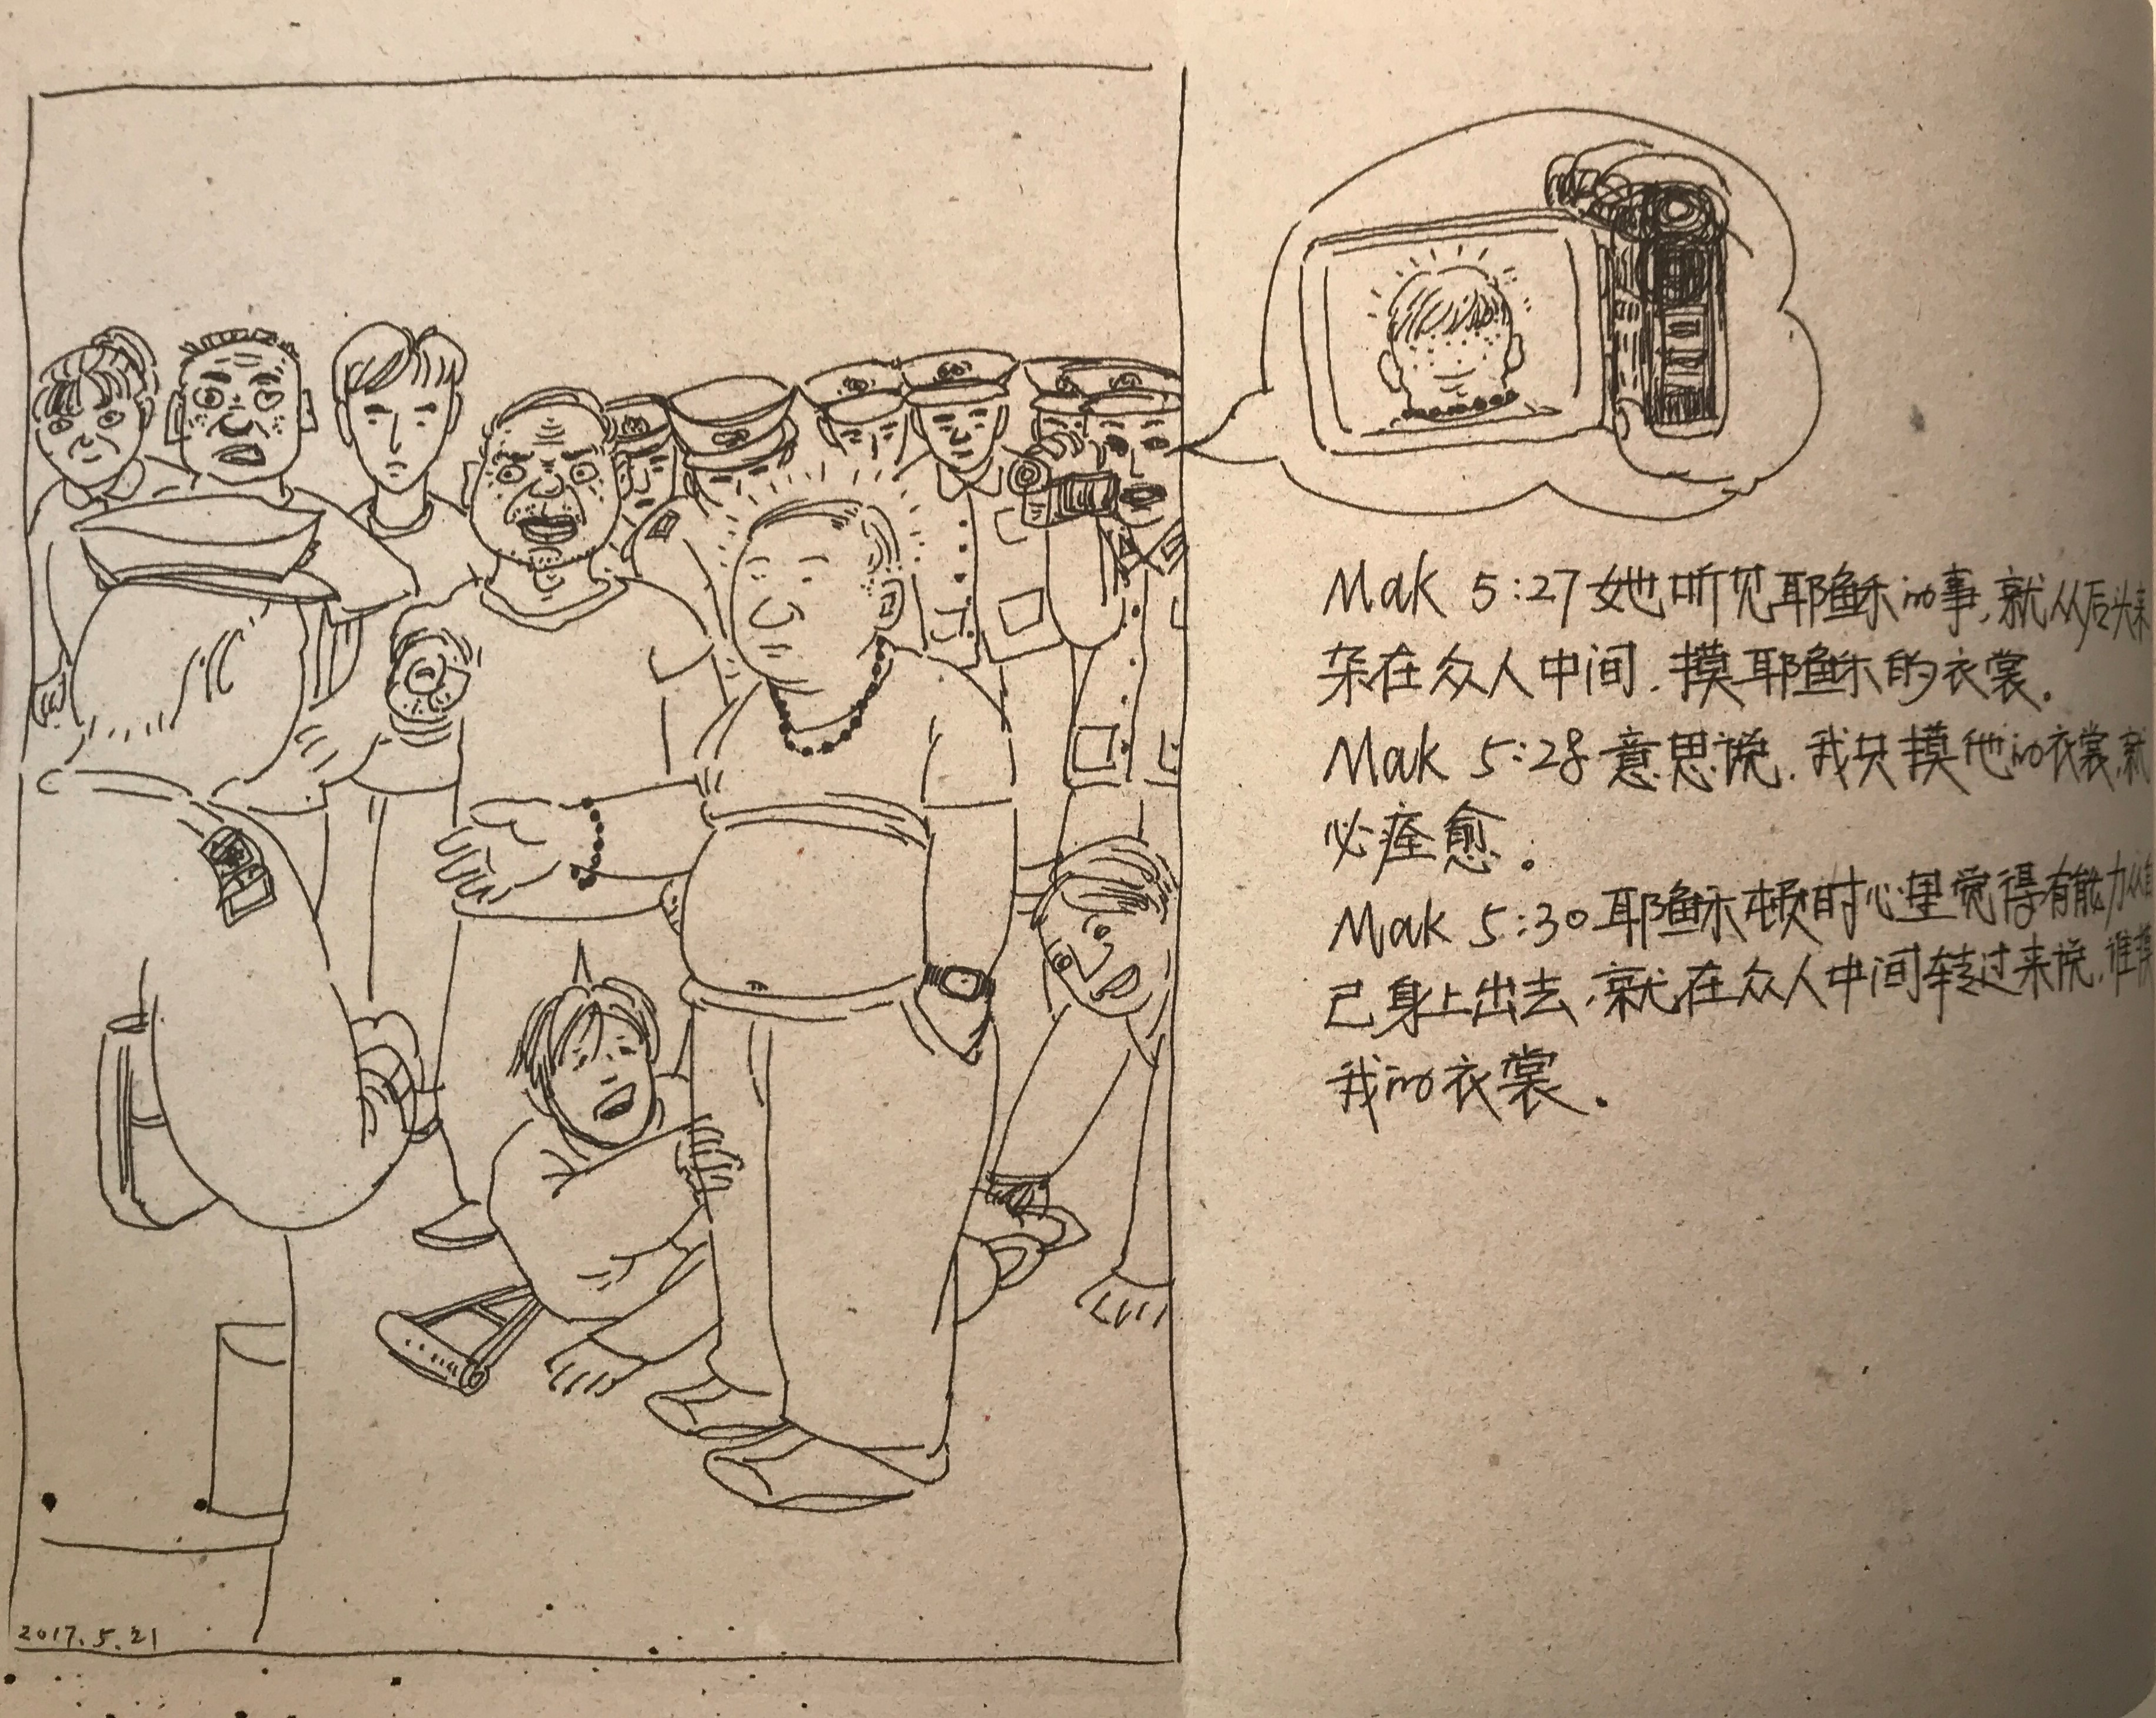 Mak 5:27 她听见耶稣的事,就从后头来
杂在众人中间.摸耶稣的衣裳.
Mak 5:28 意思说.我只摸他的衣裳,就
必痊愈.
Mak 5:30 耶稣顿时心里觉得有能力从自
己身上出去.就在众人中间转过来说.谁摸
我的衣裳.
2017.5.21